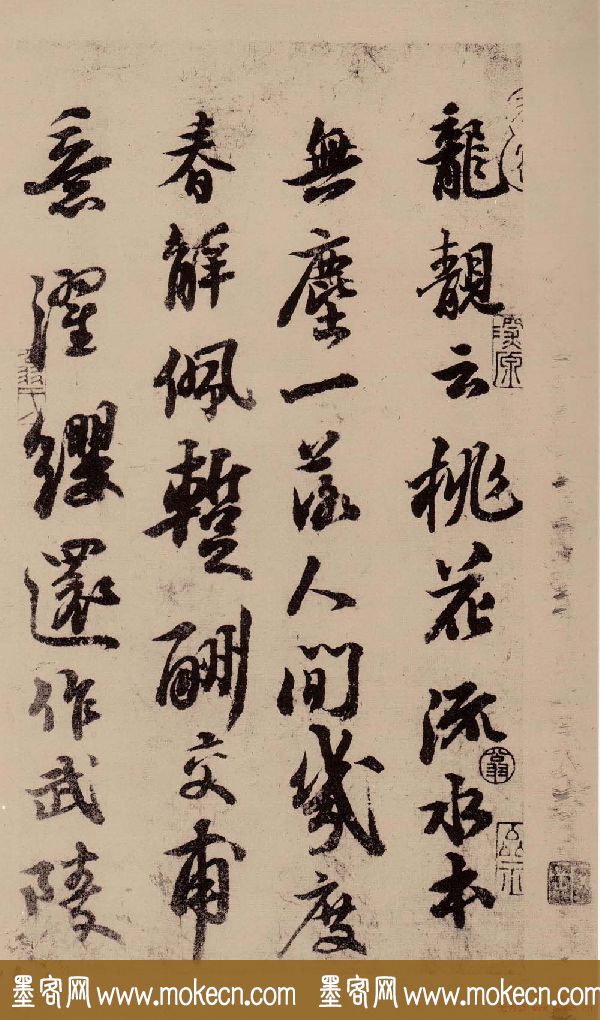 龍靚云桃花流水本
無塵一落人間幾度
春解佩蹔酬交甫
意濯纓還作武陵
墨客网 www.mokecn.com 墨客网 www.mokecn.com